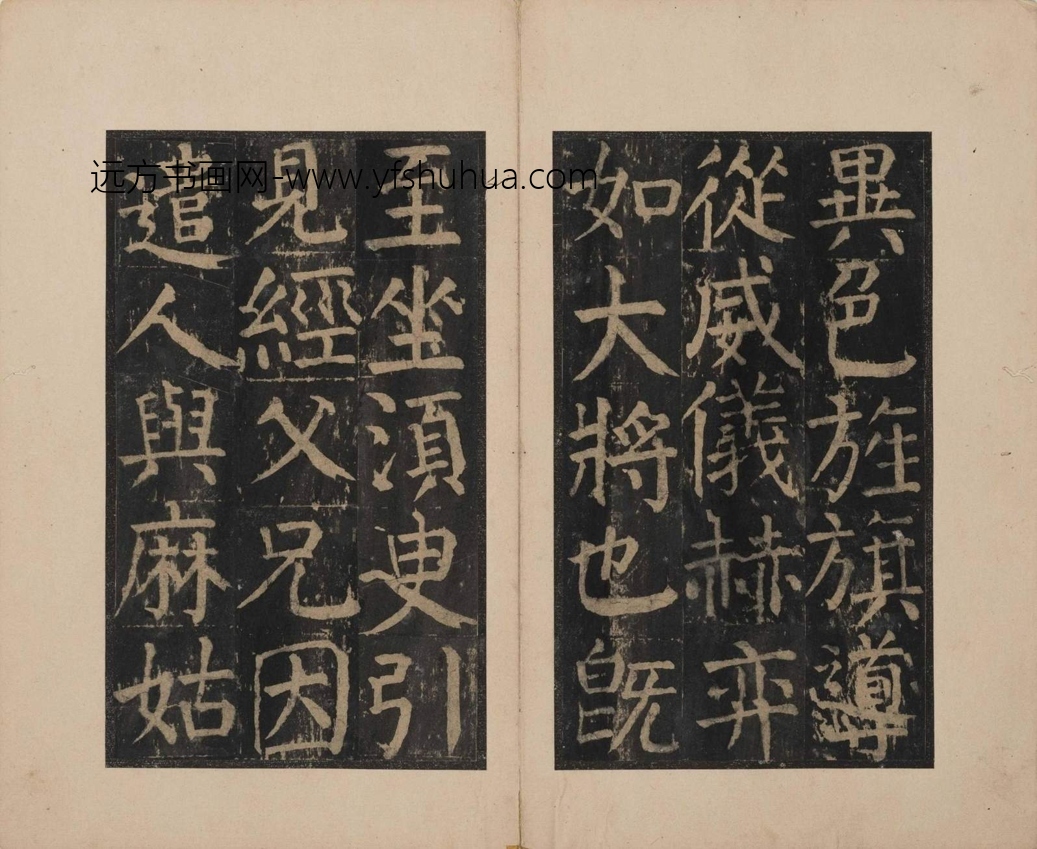 異色旌旗導
從威儀赫弈
如大將也既
至坐須臾引
見經父兄因
遣人與麻姑
远方书画网-www.yfshuhua.com